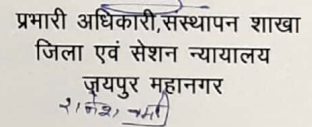 प्रभारी अधिकारी,संस्थापन शाखा
जिला एवं सेशन न्यायालय
जयपुर महानगर